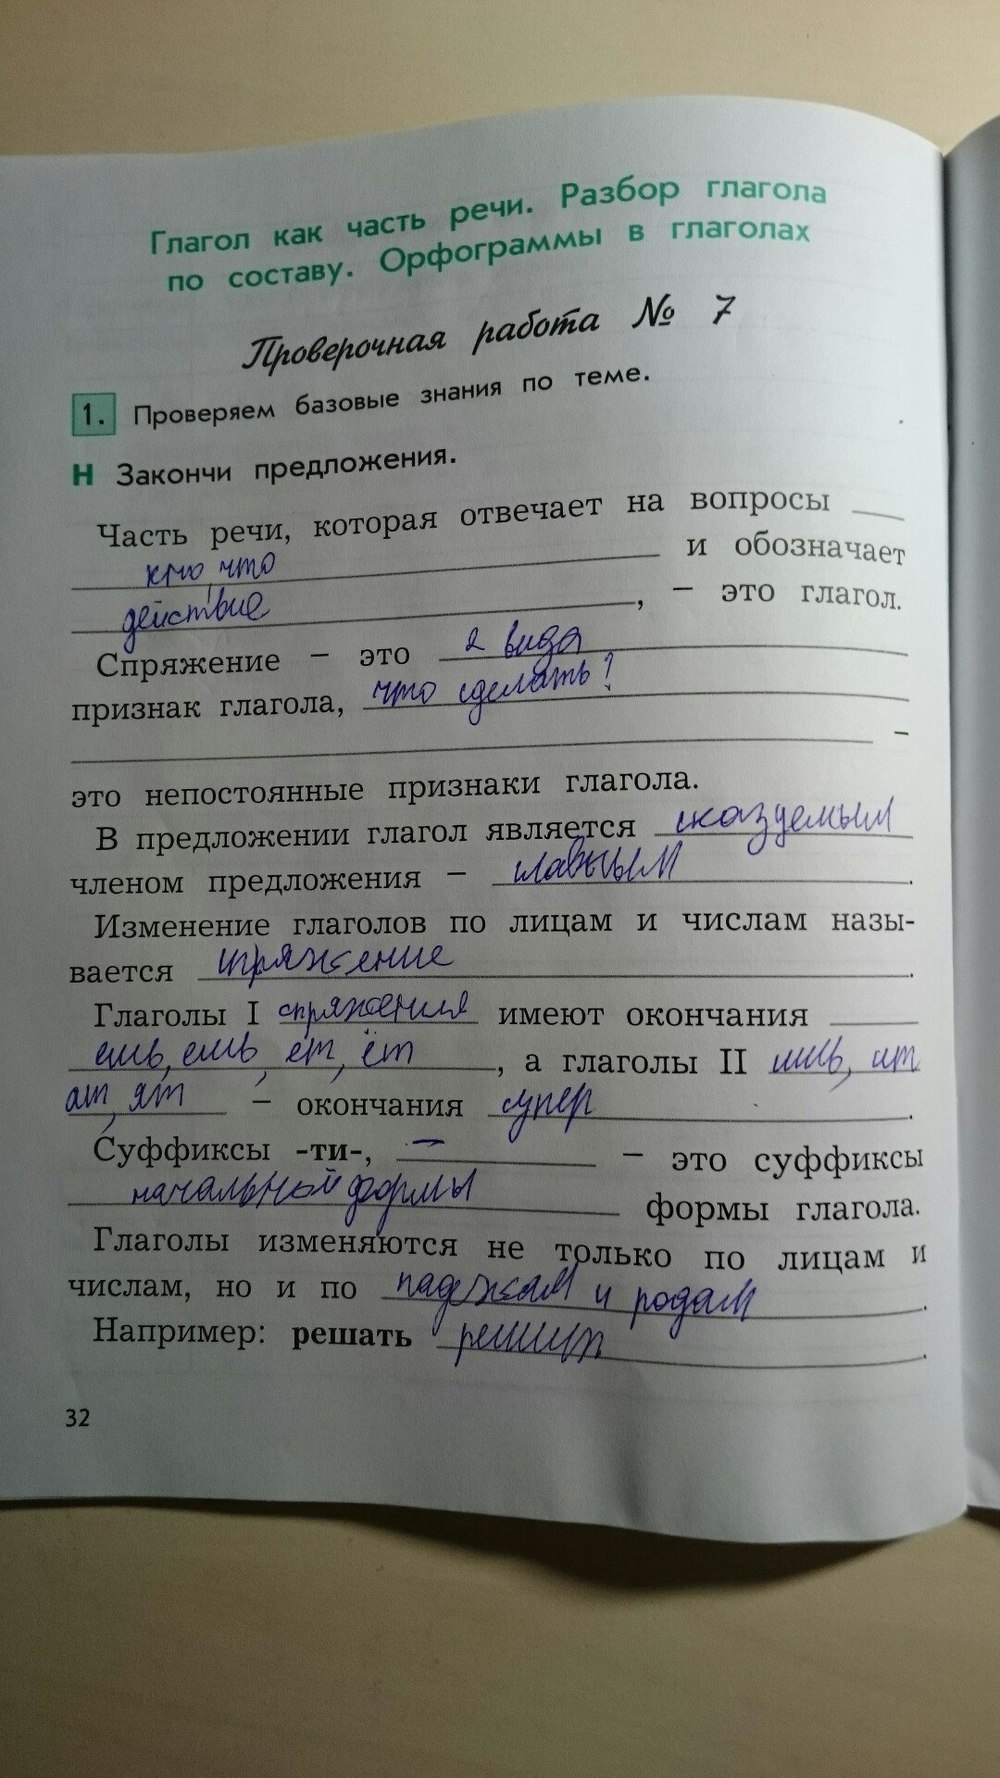 Глагол как часть речи. Разбор глагола
по составу. Орфограммы в глаголах
Проверочная работа № 7
1. Проверяем базовые знания по теме.
Н Закончи предложения.
Часть речи, которая отвечает на вопросы ___
кто, что и обозначает
действие, – это глагол.
Спряжение – это 2 вида
признак глагола, что сделать?
–
это непостоянные признаки глагола.
В предложении глагол является сказуемым
членом предложения – главным.
Изменение глаголов по лицам и числам назы-
вается спряжение.
Глаголы I спряжения имеют окончания
ешь, ешь, ет, ёт, а глаголы II ишь, ит
ат, ят – окончания.
Суффиксы -ти-, – – это суффиксы
начальной формы формы глагола.
Глаголы изменяются не только по лицам и
числам, но и по падежам и родам.
Например: решать.
32